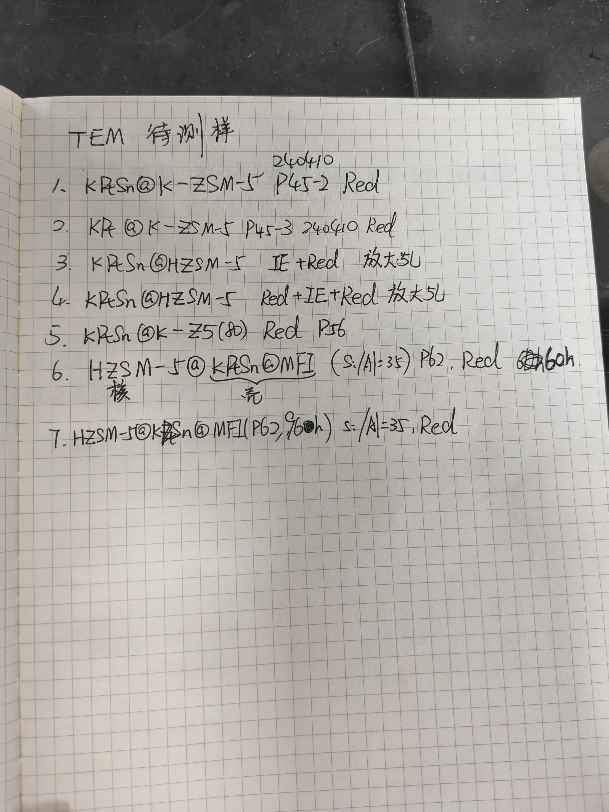 TEM 待测样
240410
1. KPtSn@K-ZSM-5 P45-2 Red
2. KPt@K-ZSM-5 P45-3 240410 Red
3. KPtSn@HZSM-5 IE+Red 放大5L
4. KPtSn@HZSM-5 Red+IE+Red 放大5L
5. KPtSn@K-Z5(80) Red P56
6. HZSM-5@KPtSn@MFI (Si/Al=35) P62, Red 60h
核 壳
7. HZSM-5@KPtSn@MFI(P62, 96h) Si/Al=35, Red